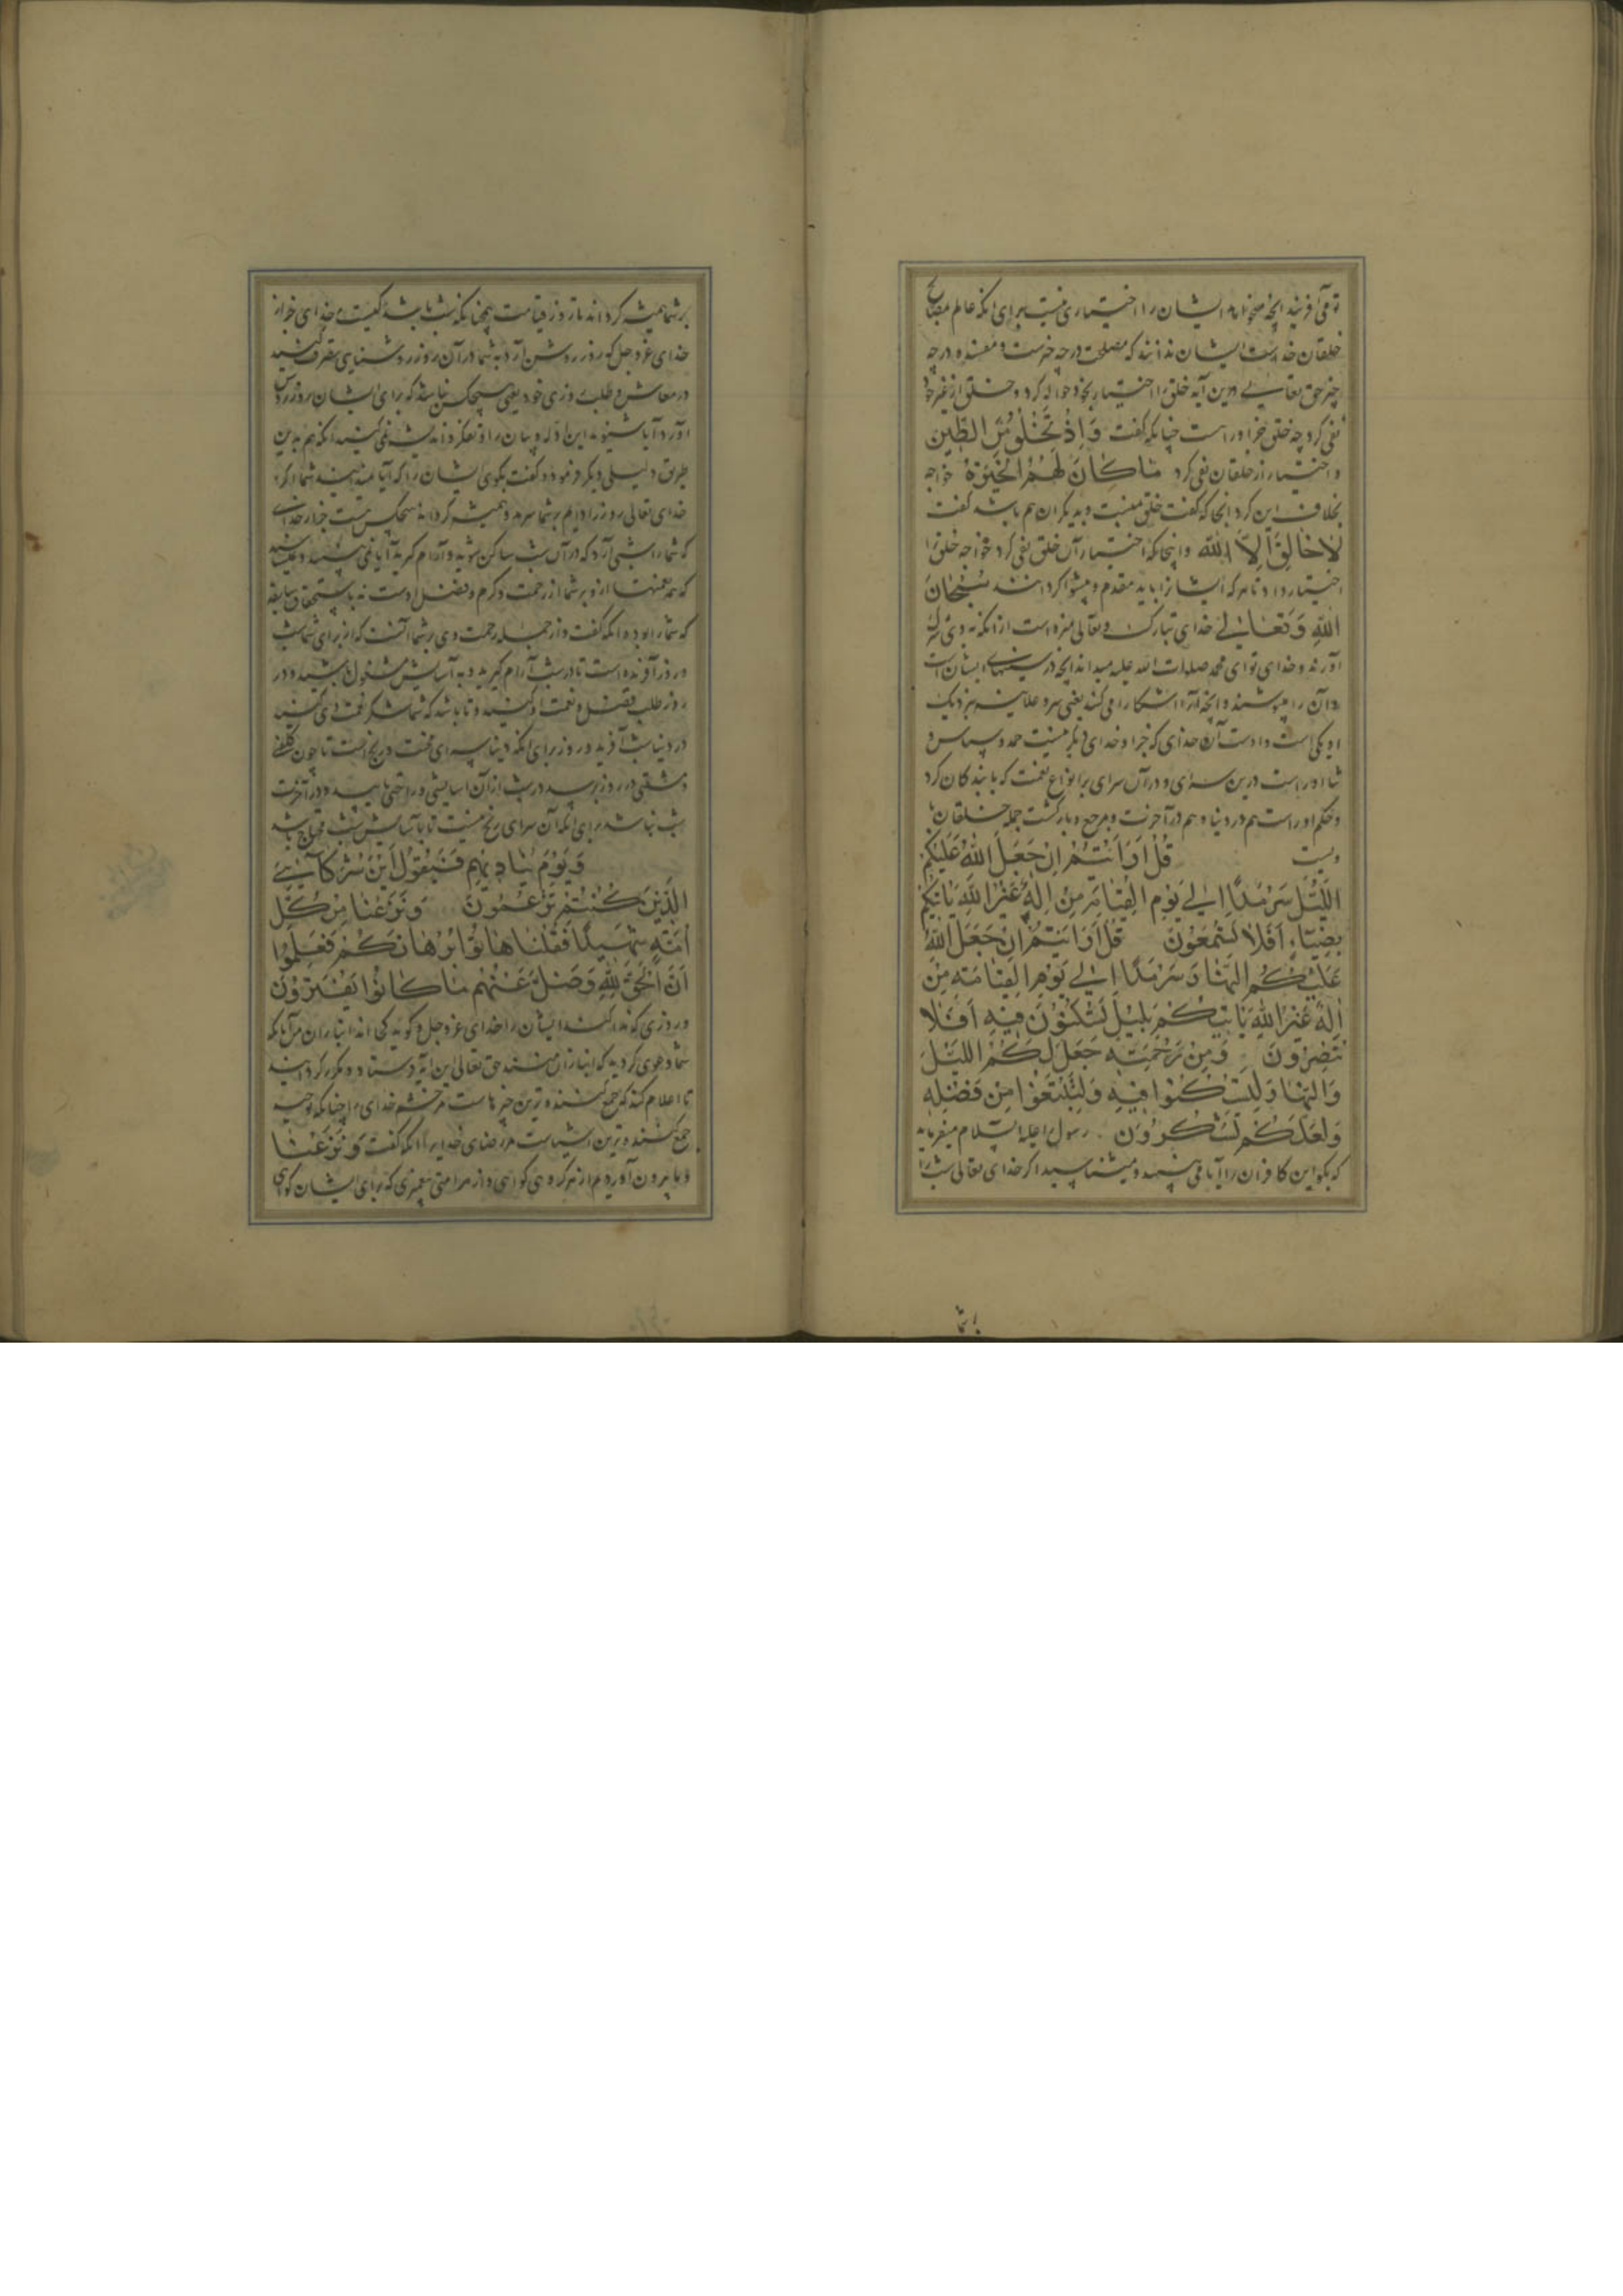 تو می آفریند آنچه میخواهد ایشان را اختیاری نیست برای آنکه عالم بمصالح
خلقان خداست ایشان ندانند که مصلحت در چه چیزست و مفسده در چه
چیز حق تعالی درین آیه خلق را اختیار بخود حواله کرد و خلق از غیر خود
نفی کرد چه خلق جز او راست چنانکه گفت وَاِذْ تَخْلُقُ مِنَ الطّینِ
و اختیار از خلقان نفی کرد مَا كَانَ لَهُمُ الْخِیَرَةُ خواجه
بخلاف این کرد آنجا که گفت خلق معنیست و بدیگران هم باشد گفت
لَا خَالِقَ اِلَّا اللّٰه و اینجا که اختیار آن خلق نفی کرد خواجه خلق را
اختیار داد تا هر که ایشانرا باید مقدم و پیشوا کردانند سُبْحَانَ
اللّٰهِ وَتَعَالٰی خدای تبارک و تعالی منزه است از آنکه به وی شرک
آورند و خدای تو ای محمد صلوات الله علیه میداند آنچه در سینهای ایشان است
و آن را میپوشند و آنچه آنرا آشکارا می کنند یعنی سر و علانیه بنزدیک
او یکی است و اوست آن خدای که جز او خدای دیگر نیست حمد و سپاس و
ثنا او راست درین سرای و در آن سرای بر انواع نعمت که با بندکان کرد
و حکم او راست هم در دنیا و هم در آخرت و مرجع و بازگشت جمله خلقان با
ویست قُلْ اَرَاَیْتُمْ اِنْ جَعَلَ اللّٰهُ عَلَیْكُمُ
اللَّیْلَ سَرْمَدًا اِلٰی یَوْمِ الْقِیَامَةِ مَنْ اِلٰهٌ غَیْرُ اللّٰهِ یَأْتِیكُمْ
بِضِیَاءٍ اَفَلَا تَسْمَعُونَ قُلْ اَرَاَیْتُمْ اِنْ جَعَلَ اللّٰهُ
عَلَیْكُمُ النَّهَارَ سَرْمَدًا اِلٰی یَوْمِ الْقِیَامَةِ مَنْ
اِلٰهٌ غَیْرُ اللّٰهِ یَأْتِیكُمْ بِلَیْلٍ تَسْكُنُونَ فِیهِ اَفَلَا
تُبْصِرُونَ وَمِنْ رَحْمَتِهِ جَعَلَ لَكُمُ اللَّیْلَ
وَالنَّهَارَ لِتَسْكُنُوا فِیهِ وَلِتَبْتَغُوا مِنْ فَضْلِهِ
وَلَعَلَّكُمْ تَشْكُرُونَ رسول را علیه السلام میفرماید
که بگو این کافران را آیا می بینید و میشناسید اکر خدای تعالی شب را
بر شما
بر شما همیشه کرداند تا روز قیامت همچنانکه شب باشد کیست خدای جز از
خدای عز و جل که روز روشن آرد به شما در آن روز روشنایی تصرف کنید
در معاش و طلب روزی خود یعنی هیچکس نباشد که برای ایشان روز روشن
آورد آیا نشنوید این ادله و بیان را و تفکر و اندیشه نمی کنید آنکه هم بدین
طریق دلیلی دیگر فرمود و گفت بکوی ایشان را که آیا میبینید شما اکر
خدای تعالی روز را دایم بر شما سرمد و همیشه کرداند هیچکس هست جز از خدای
که شما را شبی آرد که در آن شب ساکن شوید و آرام کیرید آیا نمی بینید
که همه نعمتها ازو بر شما از رحمت و کرم و تفضل اوست نه باستحقاق سابقه
که شما را بوده آنکه گفت و از جمله رحمت وی بر شما آنست که از برای شما شب
و روز آفریده است تا در شب آرام کیرید و به آسایش مشغول باشید و در
روز طلب فضل و نعمت او کنید و تا باشد که شما شکر نعمت وی کنید
در دنیا شب آفرید و روز برای آنکه دنیا سرای محنت و رنج است تا چون کلفتی
و مشقتی در روز برسد در شب از آن آسایشی و راحتی یابید و در آخرت
شب نباشد برای آنکه آن سرای رنج نیست تا با آسایش شب محتاج باشد
وَیَوْمَ یُنَادِیهِمْ فَیَقُولُ اَیْنَ شُرَكَائِیَ
الَّذِینَ كُنْتُمْ تَزْعُمُونَ وَنَزَعْنَا مِنْ كُلِّ
اُمَّةٍ شَهِیدًا فَقُلْنَا هَاتُوا بُرْهَانَكُمْ فَعَلِمُوا
اَنَّ الْحَقَّ لِلّٰهِ وَضَلَّ عَنْهُمْ مَا كَانُوا یَفْتَرُونَ
و روزی که ندا کنند ایشان را خدای عز و جل و گوید کجا اند انبازان من آنانکه
شما دعوی کردید که انبازان منند حق تعالی این آیه دو مکرر کردانید
تا اعلام کند که جمع کننده ترین چیزهاست مر خشم خدای را چنانکه توحید
جمع کننده ترین اشیاست مر رضای خدایرا آنکه گفت وَنَزَعْنَا
و ما بیرون آوردیم از هر کروهی کواهی و از هر امتی پیغمبری که برای ایشان کواهی